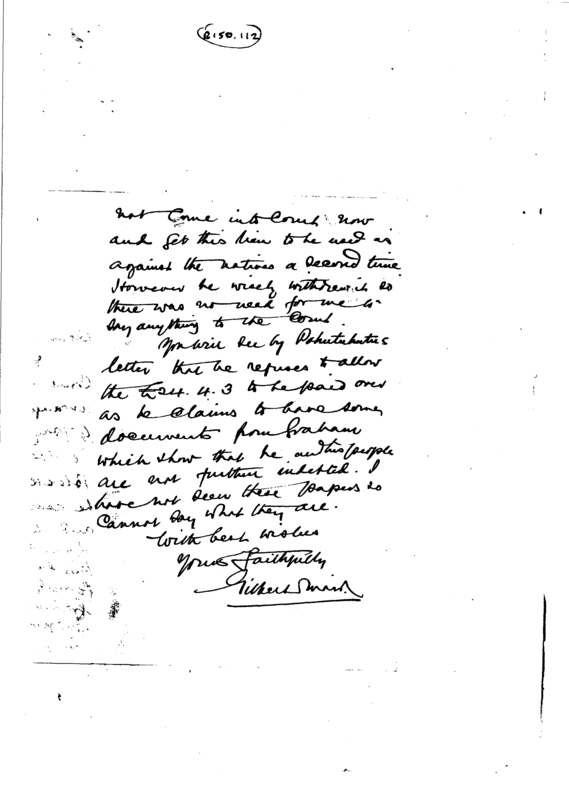 R150.112
not Come into Court now
and get this lien to be used as
against the natives a second time
However he wisely withdrew it so
there was no need for me to
say anything to the Court.
You will see by Pohutuhutu's
letter that he refuses to allow
the £24. 4. 3 to be paid over
as he claims to have some
documents from Graham
which show that he and his people
are not further indebted. I
have not seen these papers so
Cannot say what they are.
With best wishes
Yours Faithfully
Gilbert Mair